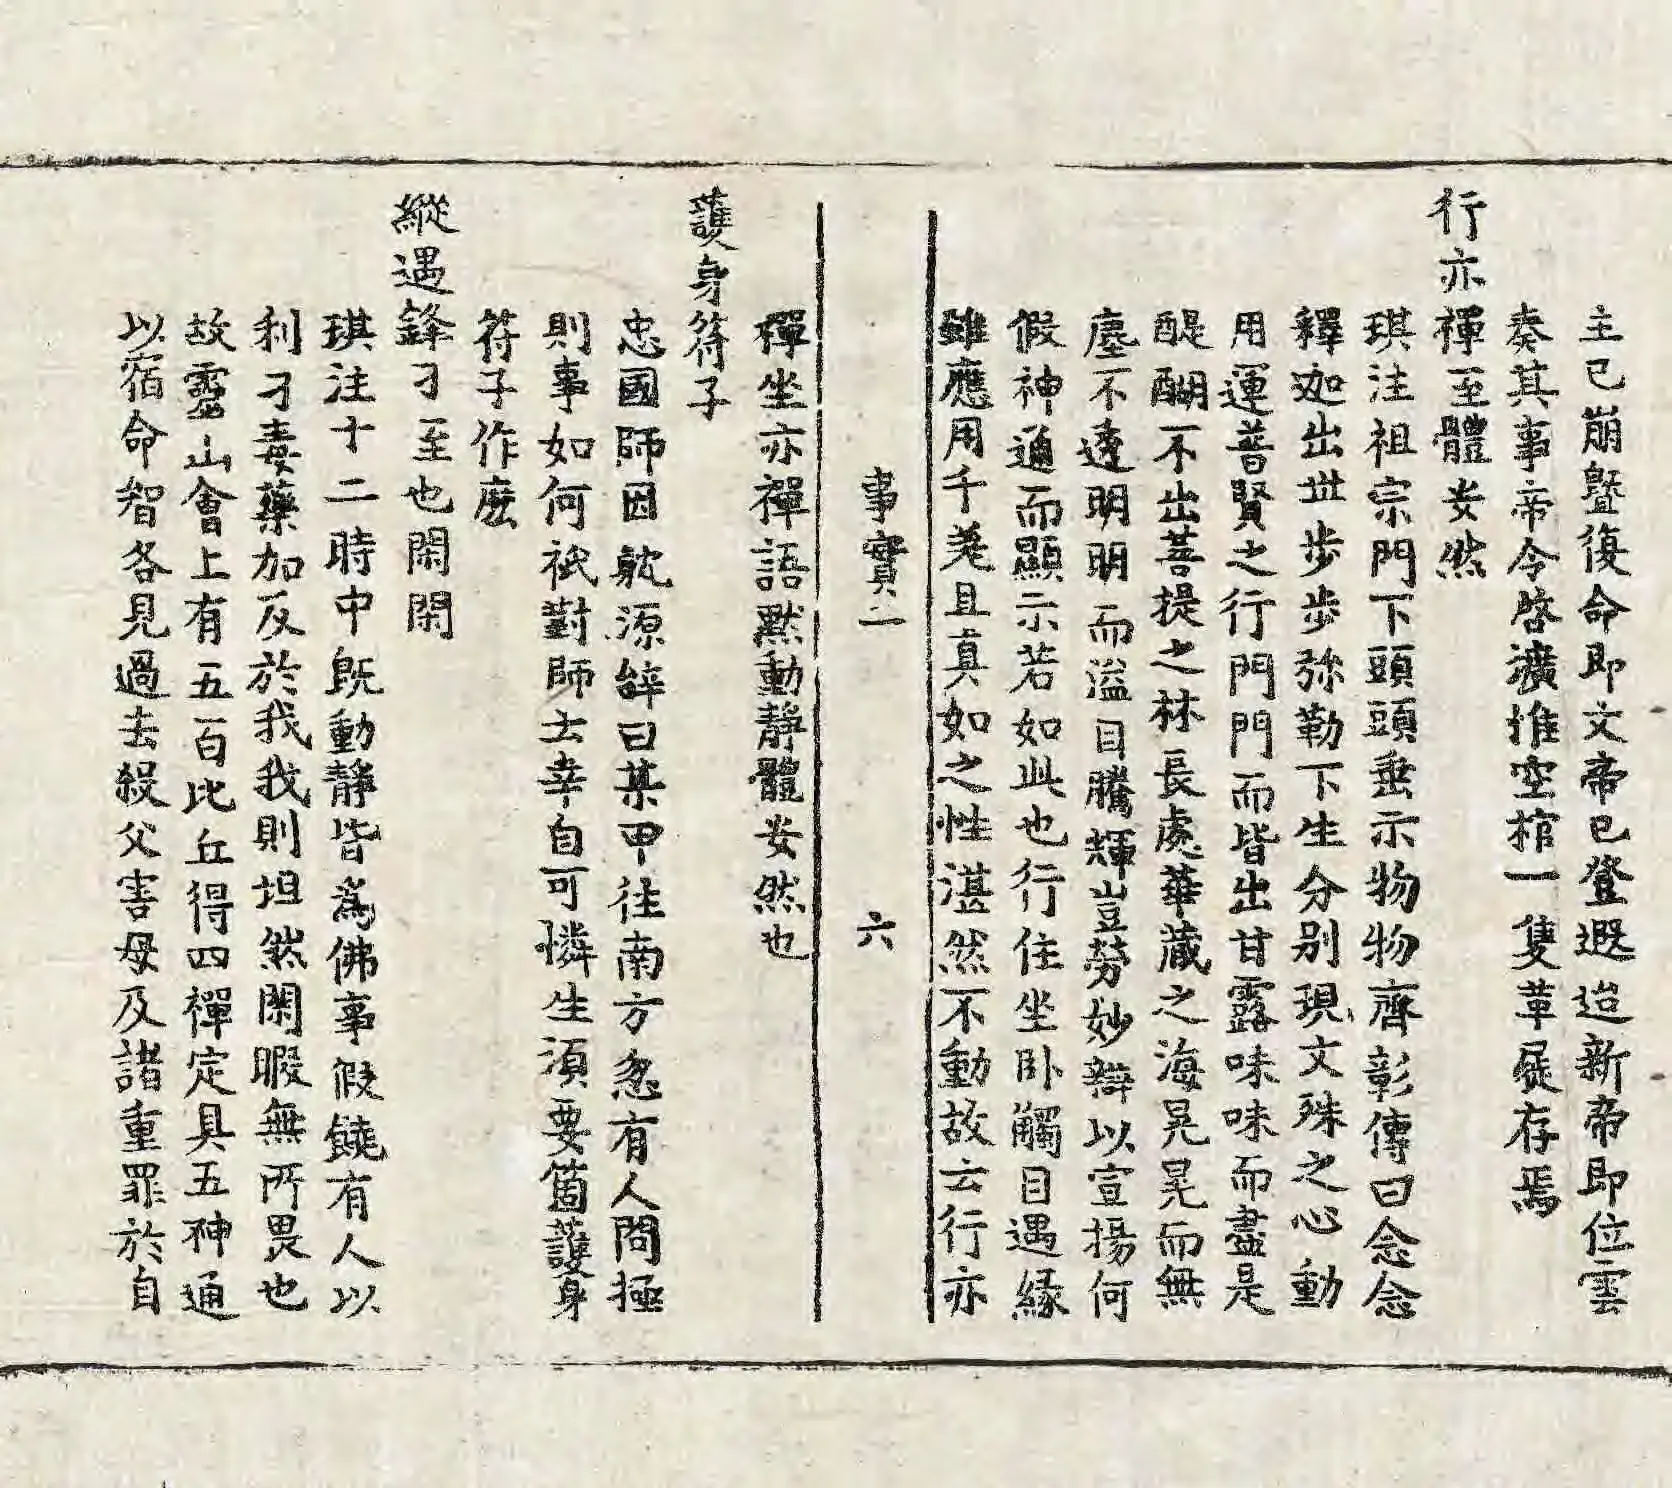 主已崩曁復命即文帝已登遐迨新帝即位雲
奏其事帝令啓壙惟空棺一隻革屣存焉
行亦禪至體安然
琪注祖宗門下頭頭垂示物物齊彰傳曰念念
釋迦出世步步弥勒下生分别現文殊之心動
用運普賢之行門門而皆出甘露味味而盡是
醍醐不出菩提之林長處華藏之海晃晃而無
塵不透明明而溢目騰輝豈勞妙辯以宣揚何
假神通而顯示若如此也行住坐卧觸目遇緣
雖應用千差且真如之性湛然不動故云行亦
事實二
六
禪坐亦禪語黙動靜體安然也
護身符子
忠國師因躭源辞曰某甲往南方忽有人問極
則事如何祇對師云幸自可憐生須要箇護身
符子作麽
縱遇鋒刀至也閑閑
琪注十二時中旣動靜皆爲佛事假饒有人以
利刀毒藥加反於我我則坦然閑暇無所畏也
故靈山會上有五百比丘得四禪定具五神通
以宿命智各見過去殺父害母及諸重罪於自